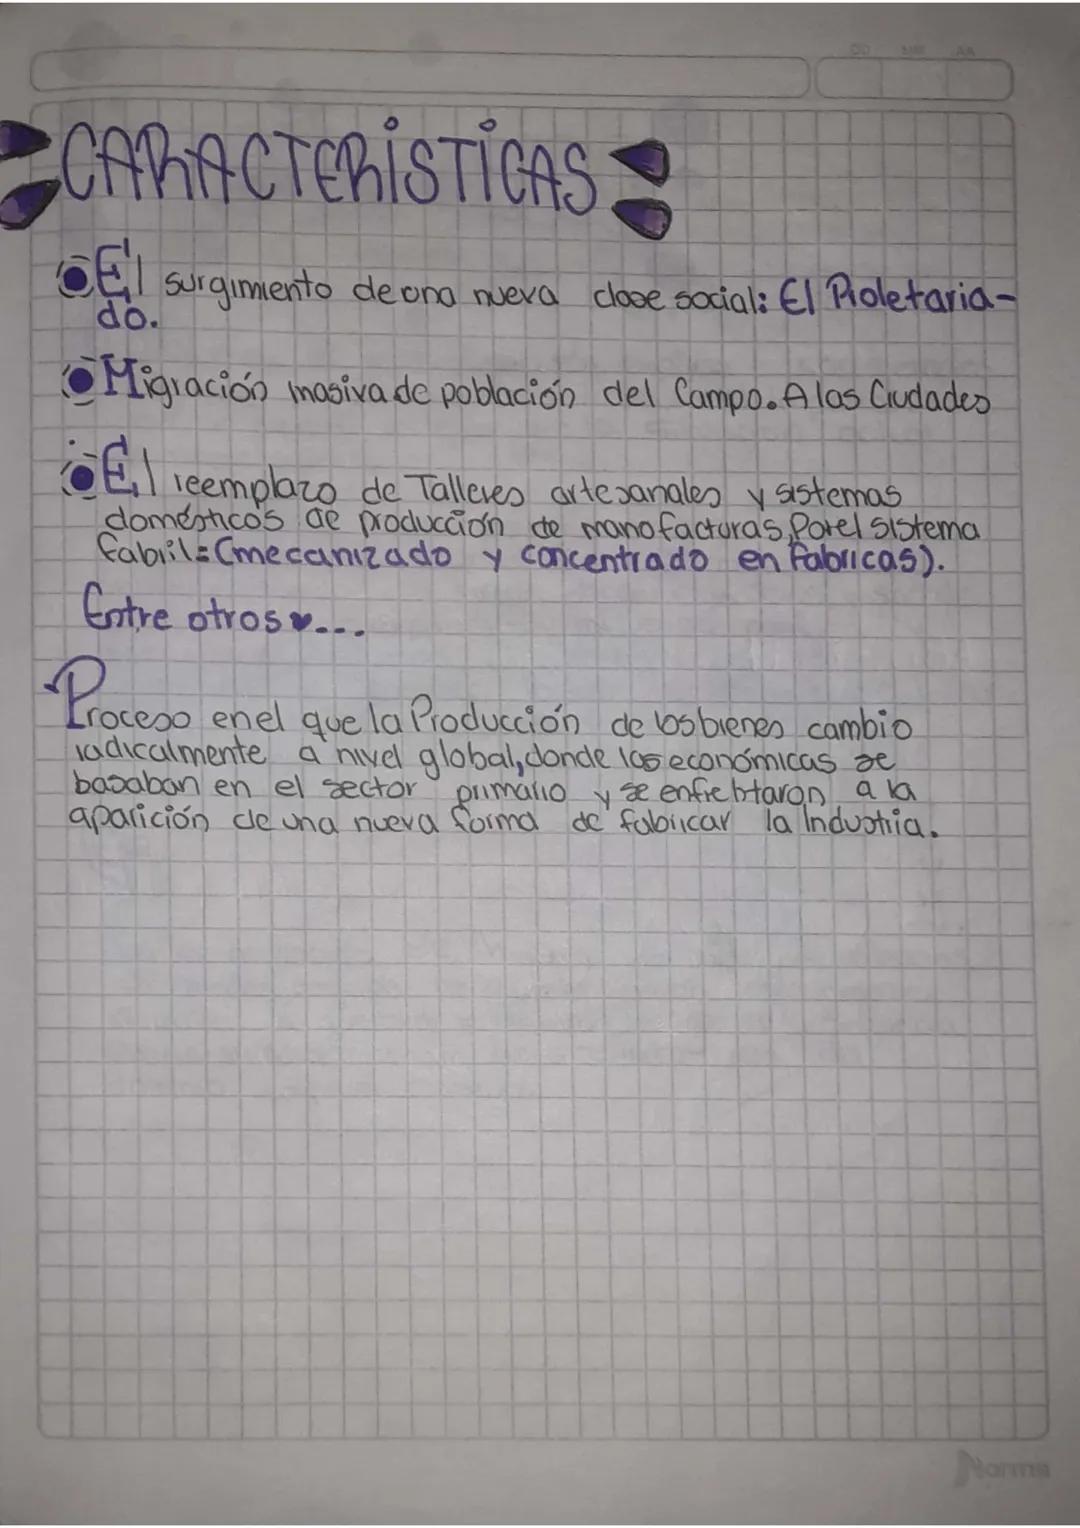 DD MM AA
CARACTERiSTiCAS
El surgimiento de una nueva clase social: El Proletaria-
do.
Migración masiva de población del Campo. A las Ciudades
El reemplazo de Talleres artesanales y sistemas
domésticos de producción de manofacturas, Por el sistema
Fabril=(mecanizado y concentrado en Fabricas).
Entre otros ♥...
Proceso en el que la Producción de los bienes cambio
radicalmente a nivel global, donde las económicas se
basaban en el sector primario y se enfrentaron a la
aparición de una nueva forma de fabricar la Industria.
Norma